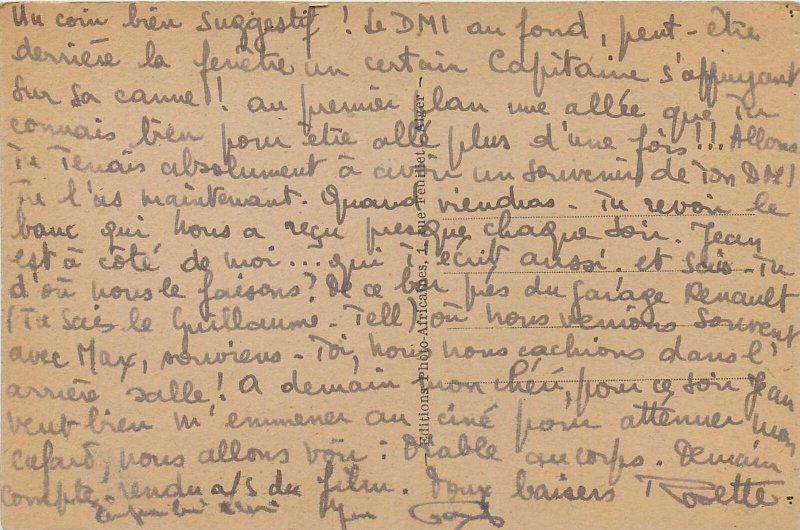 Un coin bien suggestif ! Le DMI au fond, peut-être
derrière la fenêtre un certain Capitaine s'appuyant
sur sa canne ! au premier plan une allée que Tu
connais bien pour être allé plus d'une fois !!! Allons
Tu Tenais absolument à avoir un souvenir de Ton DMI
Tu l'as maintenant. Quand viendras-Tu revoir le
banc qui nous a reçu presque chaque soir. Jean
est à côté de moi... qui T'écrit aussi. et sais-Tu
d'où nous le faisons ? De ce bar près du garage Renault
(Tu sais le Guillaume-Tell) où nous venions souvent
avec Max, souviens-Toi, nous nous cachions dans l'
arrière salle ! A demain mon chéri, pour ce soir Jean
veut bien m'emmener au ciné pour atténuer mon
cafard, nous allons voir : Diable au corps. Demain
compte-rendu a/s du film. Doux baisers Rosette
Editions Photo-Africaines, 1, Rue Feuillet - Alger -